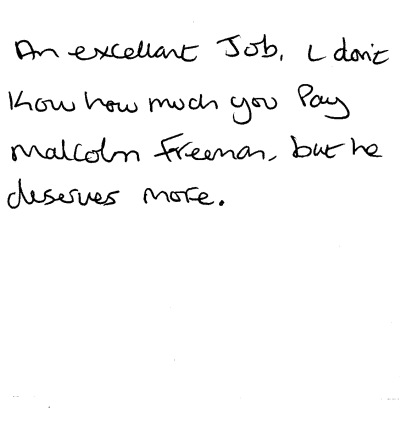 An excellant Job, I don't
Know how much you Pay
Malcolm Freeman, but he
deserves more.